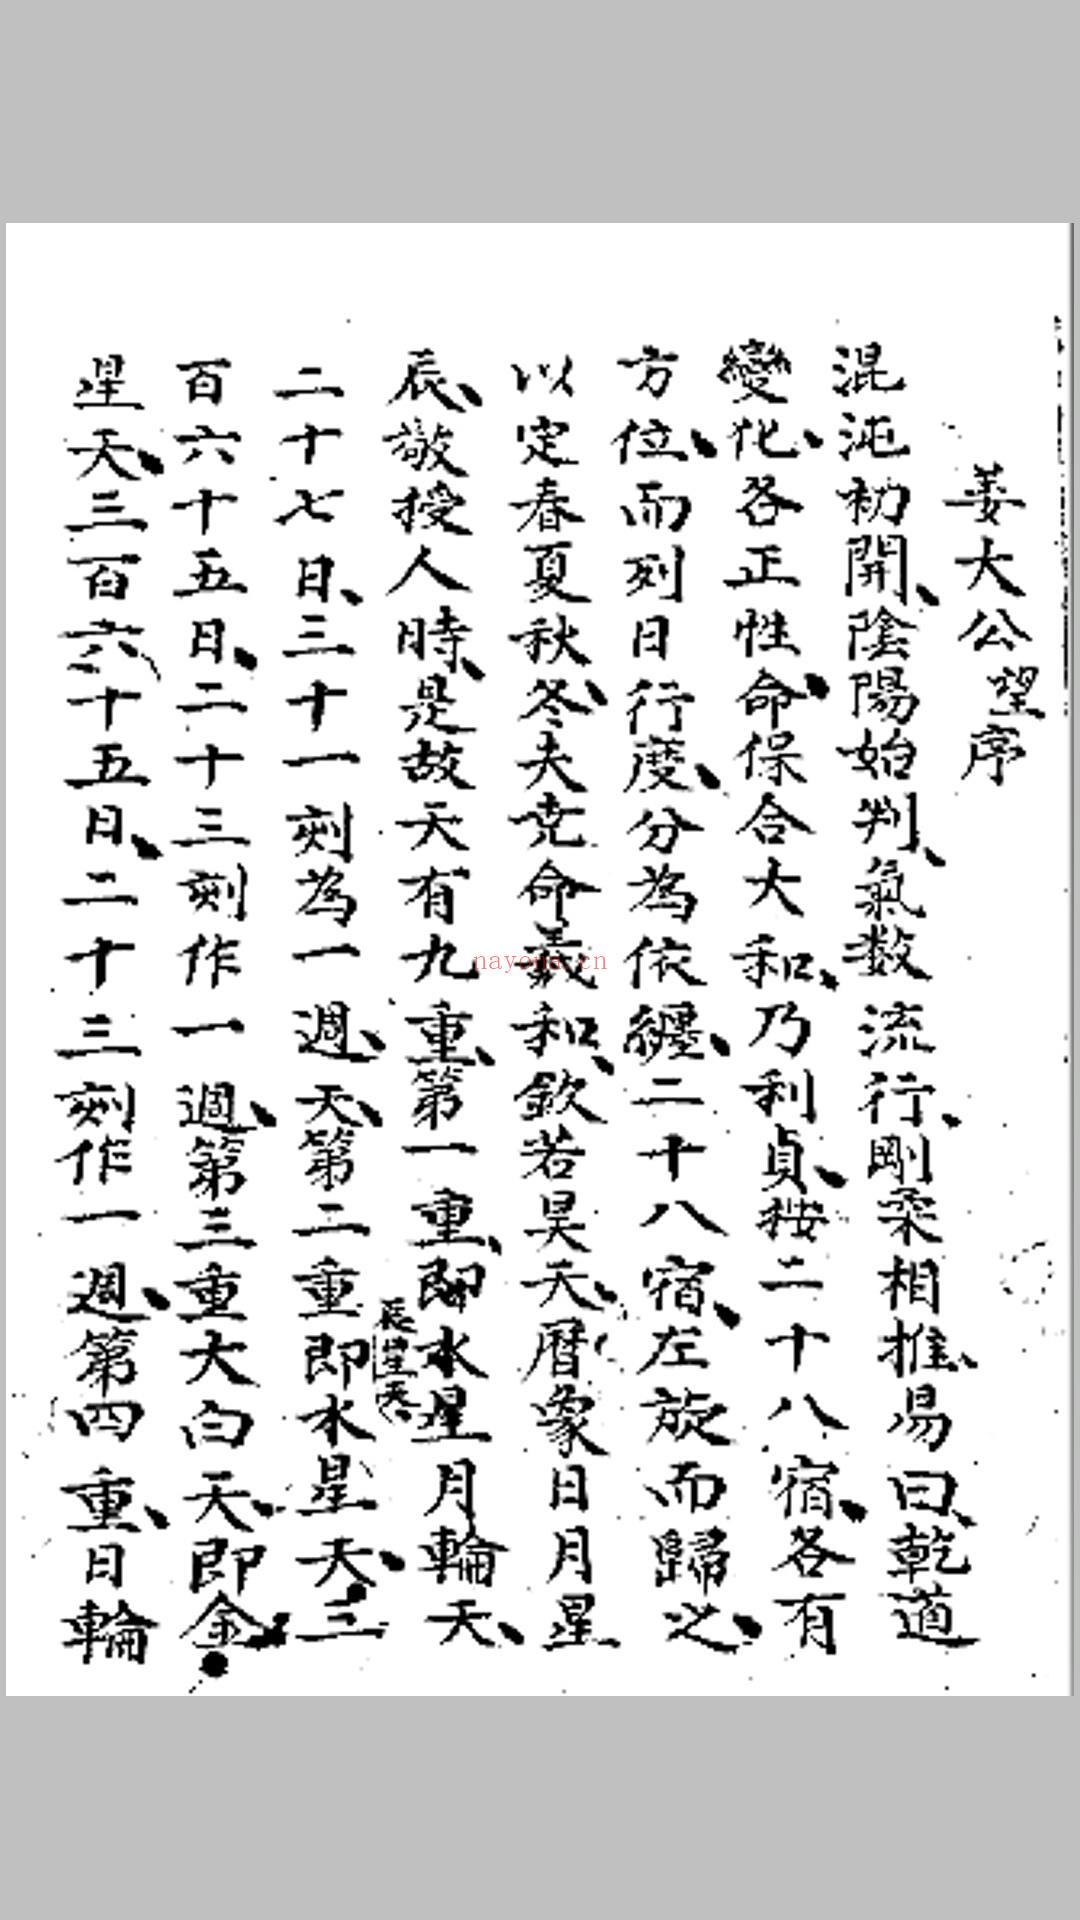 姜大公望序
混沌初開、陰陽始判、氣数流行、剛柔相推、易曰、乾道
變化、各正性命、保合大和、乃利貞、按二十八宿、各有
方位、而列日行度、分為依纏、二十八宿、左旋而歸之、
以定春夏秋冬、夫尭命羲和、欽若昊天、曆象日月星
辰、敬授人時、是故天有九重、第一重、即水星月輪天、
辰星天、
二十七日、三十一刻為一週、天、第二重即水星天、三
百六十五日、二十三刻作一週、第三重大白天、即金
星天、三百六十五日、二十三刻作一週、第四重、日輪
nayona.cn